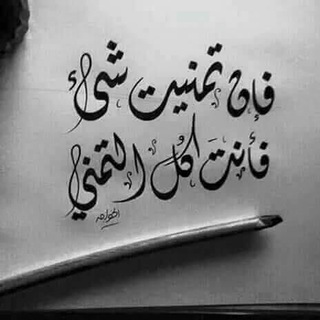 فإن تمنيت شئ
فأنتَ كُل التمني